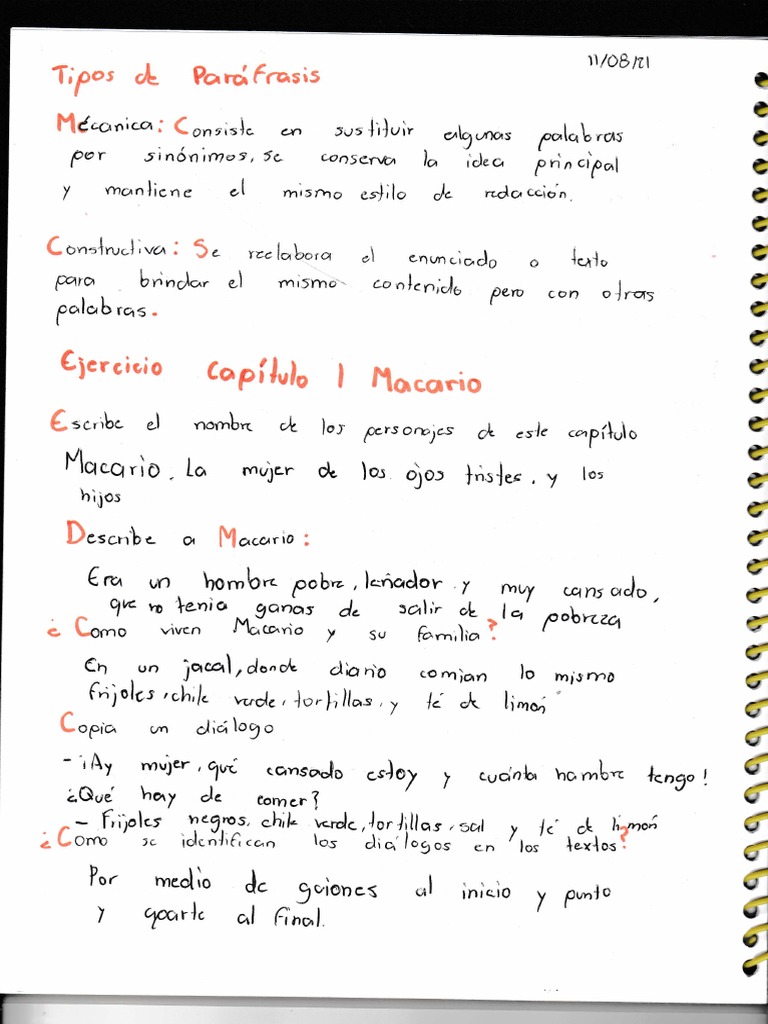 11/08/21
Tipos de Paráfrasis
Mécanica: Consiste en sustituir algunas palabras
por sinónimos, se conserva la idea principal
y mantiene el mismo estilo de redacción.
Constructiva: Se reelabora el enunciado o texto
para brindar el mismo contenido pero con otras
palabras.
Ejercicio Capítulo 1 Macario
Escribe el nombre de los personajes de este capítulo
Macario. La mujer de los ojos tristes. y los
hijos
Describe a Macario:
Era un hombre pobre, leñador y muy cansado,
que no tenia ganas de salir de la pobreza
¿Como viven Macario y su familia?
En un jacal, donde diario comian lo mismo
frijoles, chile verde, tortillas, y té de limón
Copia un diálogo
-¡Ay mujer, qué cansado estoy y cuánta hambre tengo!
¿Qué hay de comer?
- Frijoles negros, chile verde, tortillas, sal y té de limón
¿Como se identifican los diálogos en los textos?
Por medio de guiones al inicio y punto
y aparte al final.